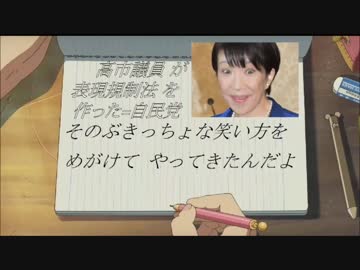 高市議員が
表現規制法を
作った=自民党
そのぶきっちょな笑い方を
めがけて やってきたんだよ